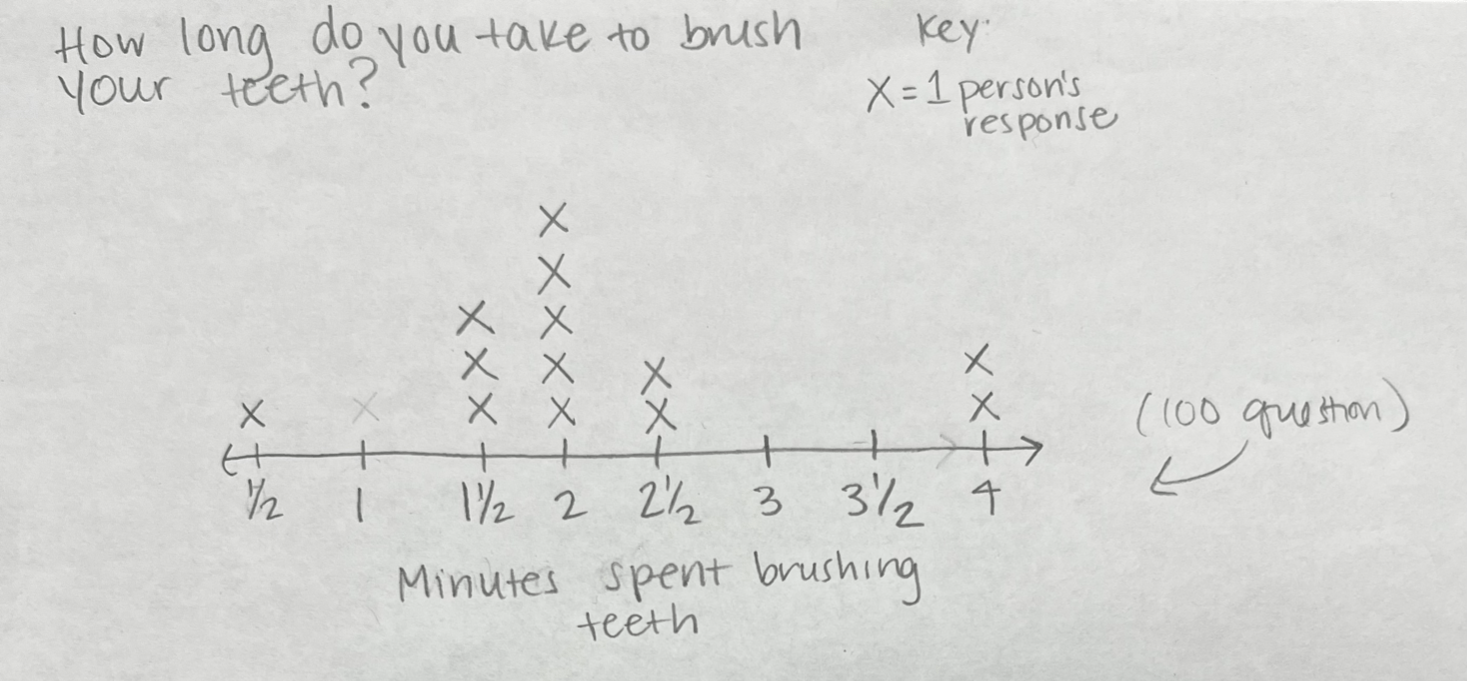 How long do you take to brush
your teeth?
Key:
X = 1 person's
response
X
X
X X
X X X
X X X X X
X X X X X X
½ 1 1½ 2 2½ 3 3½ 4
(100 question)
Minutes spent brushing
teeth